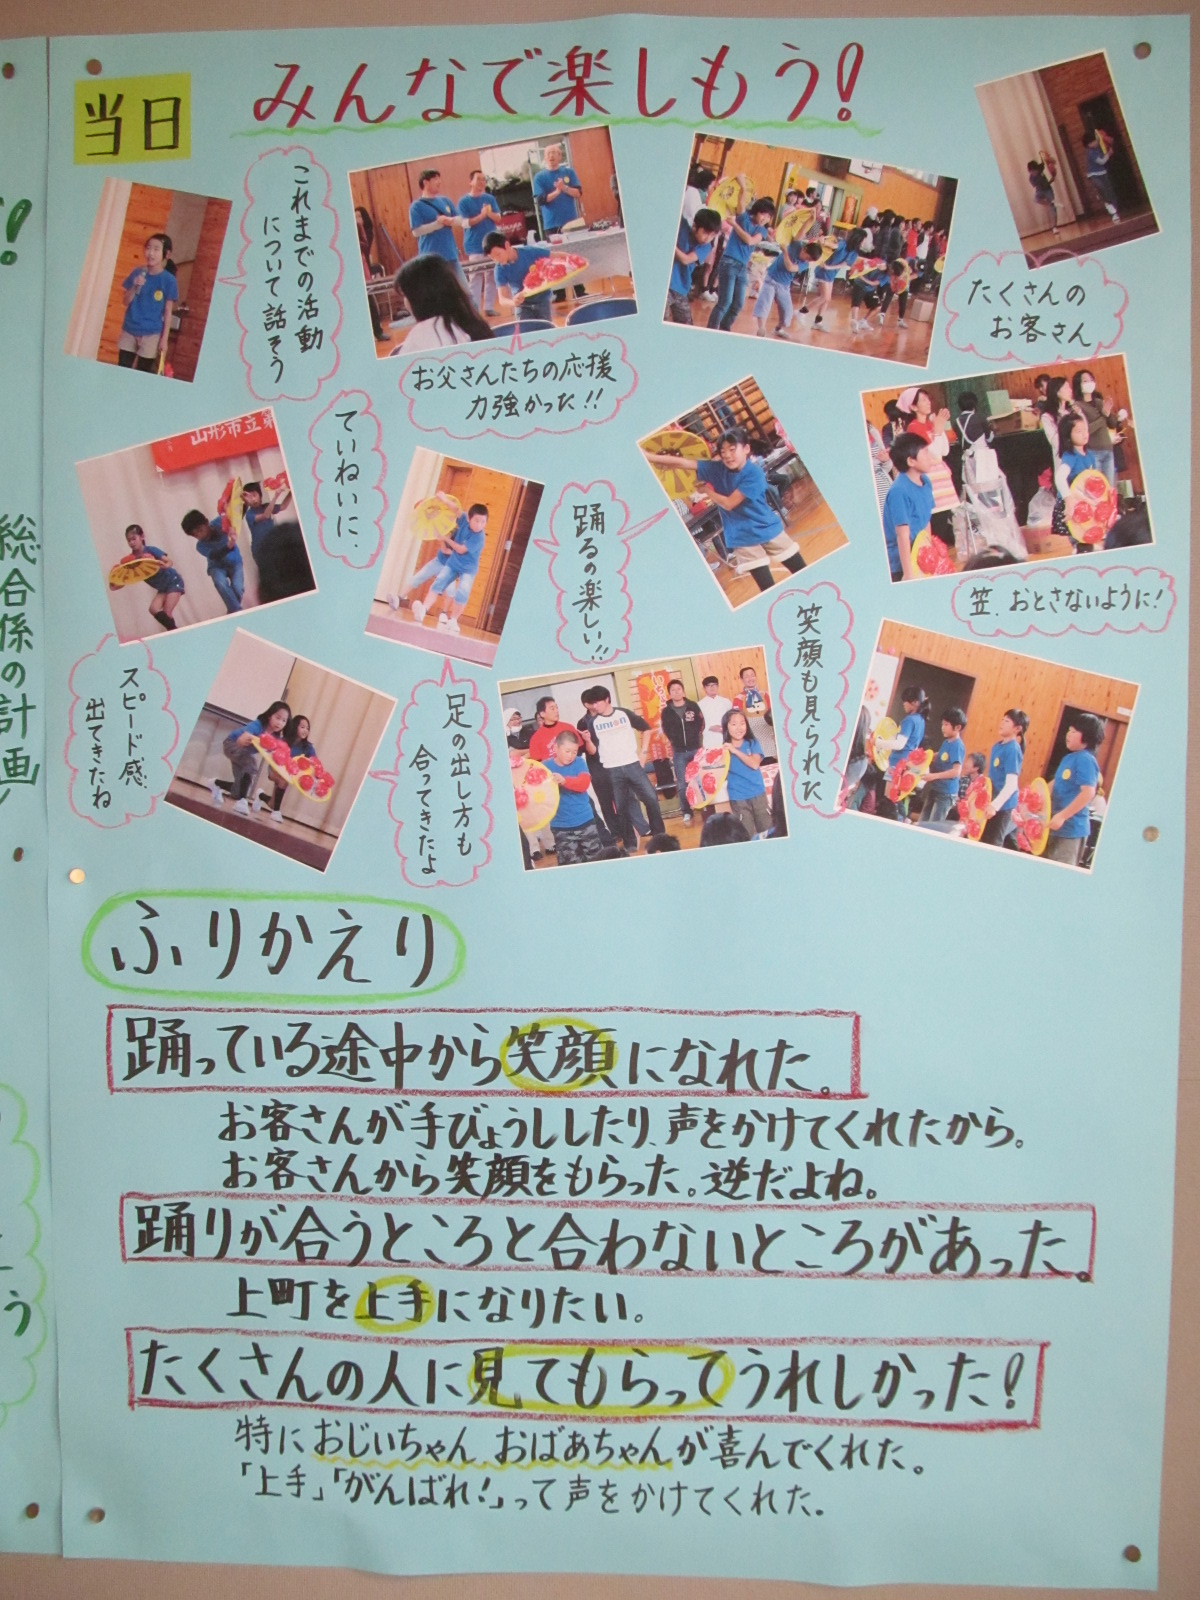 当日
みんなで楽しもう!
これまでの活動
について話そう
お父さんたちの応援
力強かった!!
たくさんの
お客さん
山形市立第
ていねいに、
踊るの楽しい!!
笠、おとさないように!
スピード感、
出てきたね
足の出し方も
合ってきたよ
笑顔も見られた
union
総合係の計画
う
ふりかえり
踊っている途中から笑顔になれた。
お客さんが手びょうししたり、声をかけてくれたから。
お客さんから笑顔をもらった。逆だよね。
踊りが合うところと合わないところがあった。
上町を上手になりたい。
たくさんの人に見てもらってうれしかった!
特におじいちゃん、おばあちゃんが喜んでくれた。
「上手」「がんばれ!」って声をかけてくれた。